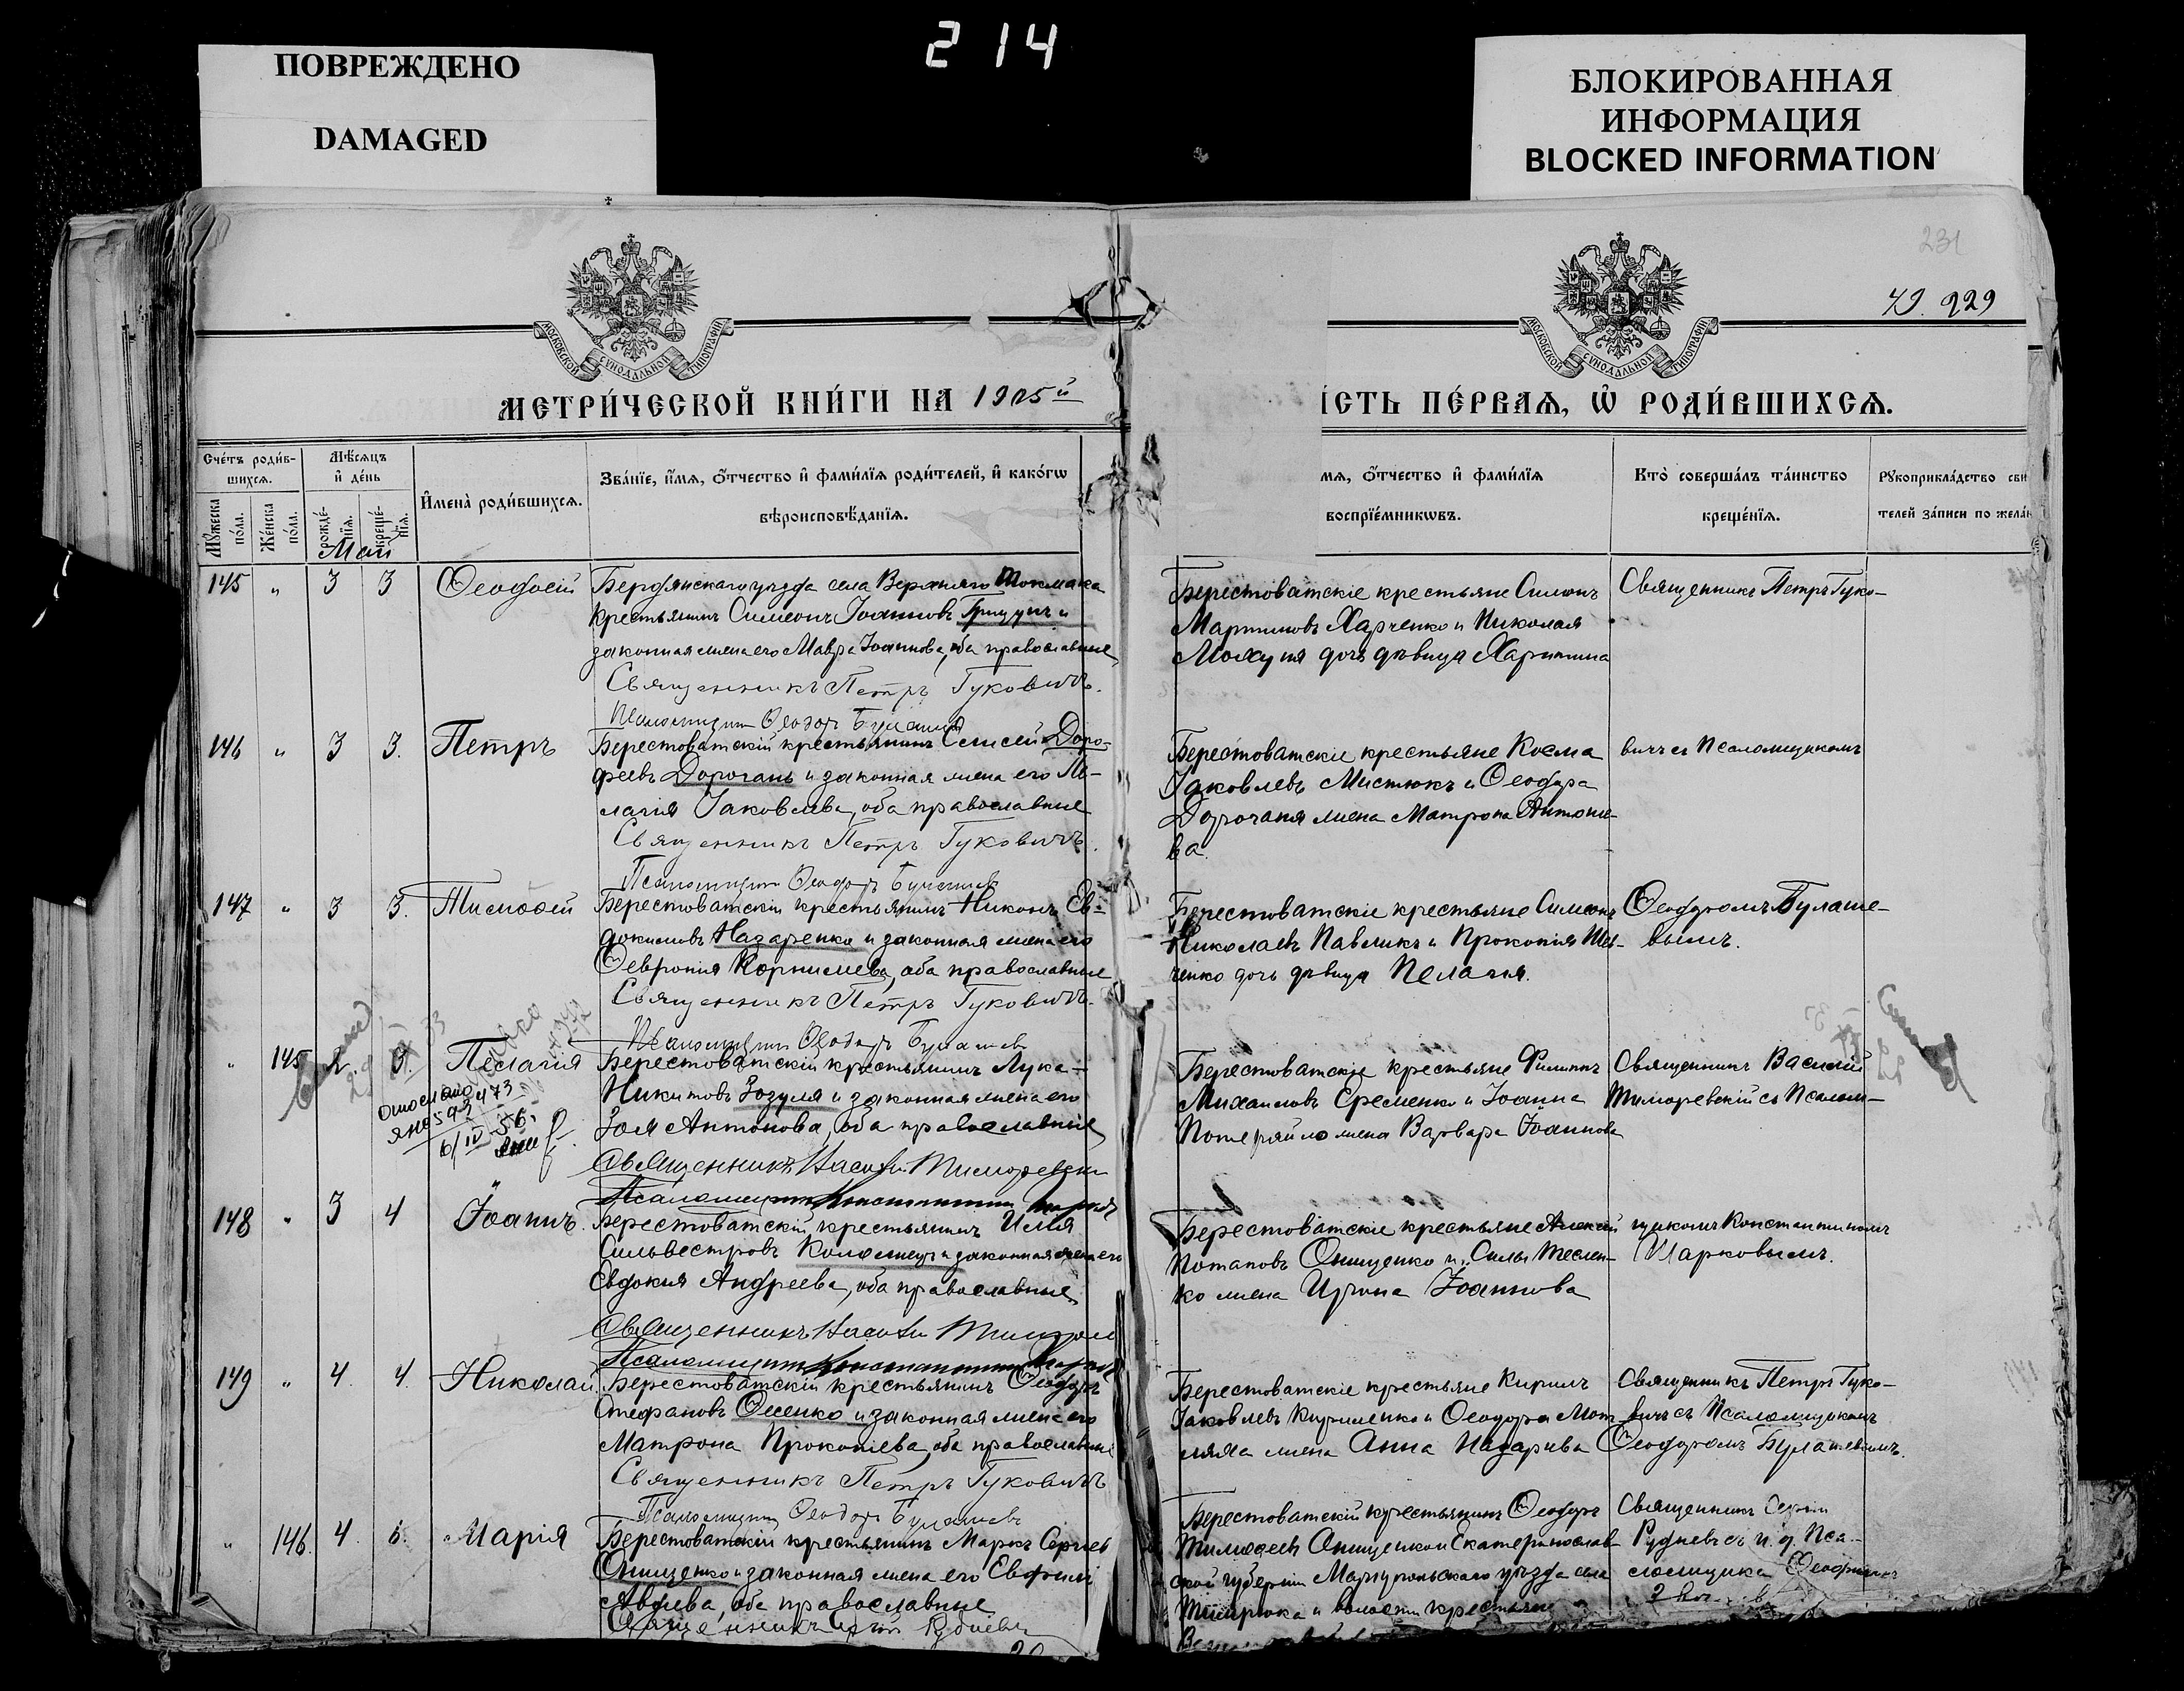 214
ПОВРЕЖДЕНО
DAMAGED
БЛОКИРОВАННАЯ
ИНФОРМАЦИЯ
BLOCKED INFORMATION
231
229
МОСКОВСКОЙ СѴНОДАЛЬНОЙ ТИПОГРАФІИ
МОСКОВСКОЙ СѴНОДАЛЬНОЙ ТИПОГРАФІИ
МЕТРИ́ЧЕСКОЙ КНИ́ГИ НА 1905й
ІСТЬ ПЕ́РВАѦ, Ѡ҆ РОДИ́ВШИХСѦ.
Сче́тъ роди́в-
шихсѧ.
Мꙋ́жеска по́ла.
Же́нска по́ла.
Мѣ́сѧцъ
и҆ де́нь
рожде́-нїѧ.
креще́-нїѧ.
Май
И҆мена̀ роди́вшихсѧ.
Зва́нїе, и҆́мѧ, ѻ҆́тчество и҆ фами́лїѧ роди́телей, и҆ како́гѡ
вѣроисповѣ́данїѧ.
мѧ, ѻ҆́тчество и҆ фами́лїѧ
воспрїе́мникѡвъ.
Кто̀ соверша́лъ та́инство
креще́нїѧ.
Рꙋкоприкла́дство сви
телей за́писи по жела́н
145 " 3 3 Ѳеодосій
Бердянскаго уѣзда села Верхняго Токмака
крестьянинъ Симеонъ Іоанновъ Грицунъ и
законная жена его Мавра Іоаннова, оба православные
Священникъ Петръ Гуковичъ.
Псаломщикъ Ѳеодоръ Булашевъ
Берестоватскіе крестьяне Симеонъ
Мартиновъ Харченко и Николая
дочь дѣвица Харитина
Священникъ Петръ Гуко-
146 " 3 3. Петръ
Берестоватскій крестьянинъ Елисей Доро-
феевъ Дорогань и законная жена его Пе-
лагія Іаковлева, оба православные
Священникъ Петръ Гуковичъ.
Псаломщикъ Ѳеодоръ Булашевъ
Берестоватскіе крестьяне Косма
Іаковлевъ Мистюкъ и Ѳеодора
Дороганя жена Матрона Антоние-
ва.
вичъ съ Псаломщикомъ
147 " 3 3. Тимоѳей
Берестоватскій крестьянинъ Никонъ Ев-
докимовъ Назаренко и законная жена его
Ѳевронія Корнилиева, оба православные
Священникъ Петръ Гуковичъ.
Псаломщикъ Ѳеодоръ Булашевъ
Берестоватскіе крестьяне Симеонъ
Николаевъ Павликъ и Прокопія Шев-
ченко дочь дѣвица Пелагія.
Ѳеодоромъ Булаше-
вымъ.
" 145 2. 3. Пелагія
Берестоватскій крестьянинъ Лука
Никитовъ Зозуля и законная жена его
Зоя Антонова, оба православные
Священникъ Василій Тиморевскій
Псаломщикъ Константинъ
Берестоватскіе крестьяне Филиппъ
Михаиловъ Еременко и Іоанна
Потеряйло жена Варвара Іоаннова
Священникъ Василій
Тиморевскій съ Псалом-
148 " 3 4 Іоаннъ.
Берестоватскій крестьянинъ Илія
Сильвестровъ Коломіецъ и законная жена его
Евдокия Андреева, оба православные
Священникъ Василій
Псаломщикъ Константинъ
Берестоватскіе крестьяне Алексій
Потаповъ Онищенко и Силы Теслен-
ко жена Ирина Іоаннова
щикомъ Константиномъ
Марковымъ.
149 " 4. 4. Николай.
Берестоватскій крестьянинъ Ѳеодоръ
Стефановъ Олсенко и законная жена его
Матрона Прокопіева, оба православные
Священникъ Петръ Гуковичъ
Псаломщикъ Ѳеодоръ Булашевъ
Берестоватскіе крестьяне Кирилъ
Іаковлевъ Кириленко и Ѳеодора
жена Анна Назарива
Священникъ Петръ Гуко-
вичъ съ Псаломщикомъ
Ѳеодоромъ Булашевымъ.
" 146. 4. Марія
Берестоватскій крестьянинъ Маркъ Сергіевъ
Онищенко и законная жена его
Авдіева, оба православные
Священникъ Рудневъ
Берестоватскій крестьянинъ Ѳеодоръ
Тимоѳеевъ Онищенко и Екатеринослав-
ской губерніи Маріупольскаго уѣзда села
и волости крестьяне
Священникъ Сергій
Рудневъ съ и. д. Пса-
ломщика